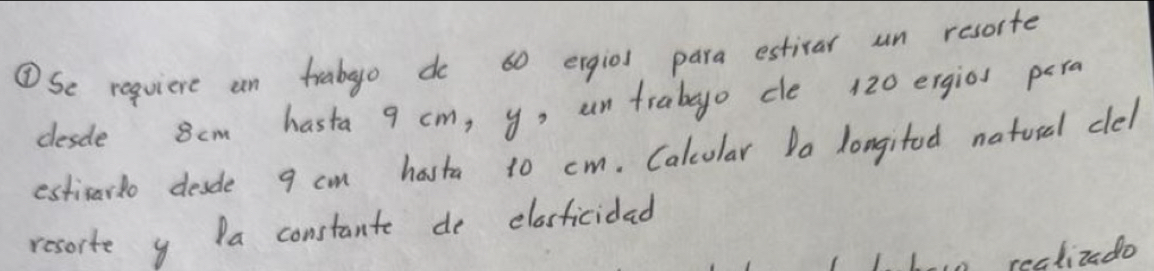 ① Se requiere un trabajo de 60 ergios para estirar un resorte
desde 8cm hasta 9 cm, y, un trabajo de 120 ergios para
estirarlo desde 9 cm hasta 10 cm. Calcular la longitud natural del
resorte y la constante de elasticidad
realizado